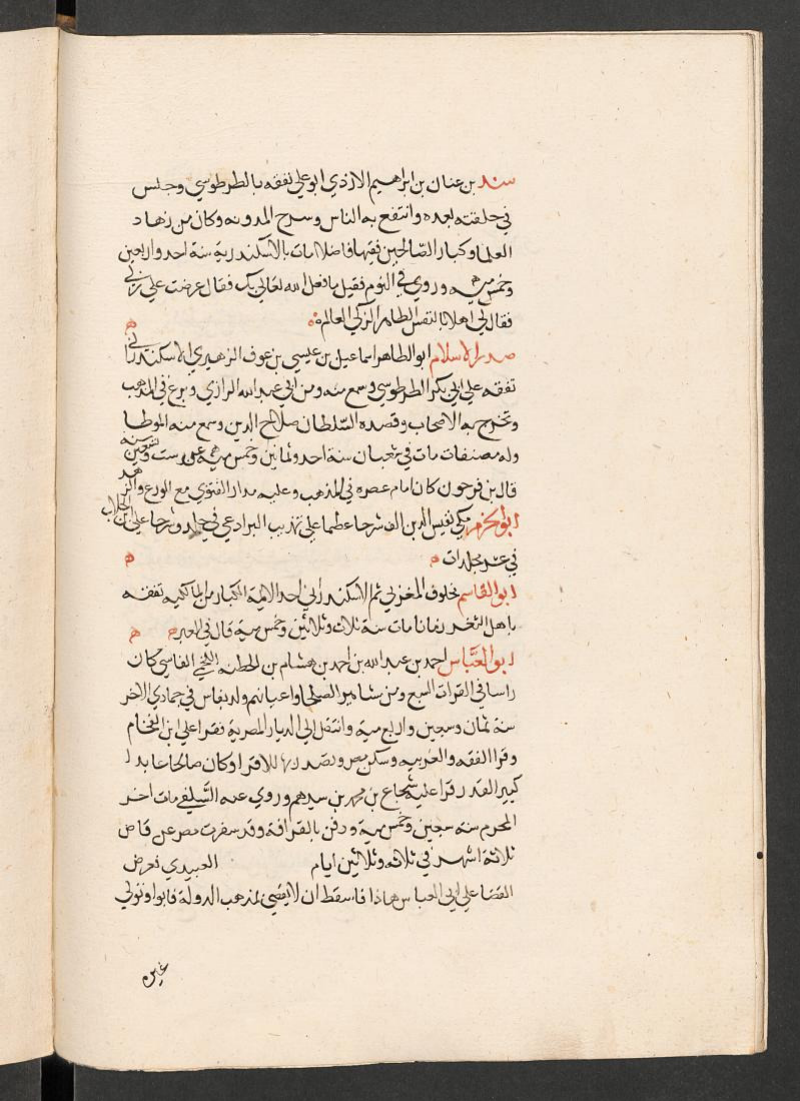 سند بن عنان بن ابراهيم الازدي ابو علي تفقه بالطرطوسي وجلس
في حلقته بعده وانتفع به الناس وشرح المدونه وكان من زهاد
العلما وكبار الصالحين فقيها فاضلا مات بالاسكندرية سنة احد واربعين
وخمس ميه وروي في النوم فقيل ما فعل الله تعالي بك فقال عرضت علي ربي
فقال لي اهلا بالنفس الطاهر الزكي العالم
صدر الاسلام ابو الطاهر اسماعيل بن عيسي بن عوف الزهري الاسكندراني
تفقه علي ابي بكر الطرطوسي وسمع منه ومن ابي عبد الله الرازي وبرع في المذهب
وتخرج به الاصحاب وقصده السلطان صلاح الدين وسمع منه الموطا
وله مصنفات مات في شعبان سنة احد وثمانين وخمس ميه عن ست وتسعين سنه
قال بن فرحون كان امام عصره في المذهب وعليه مدار الفتوي مع الورع والزهد
ابو الحزم مكي نفيس الدين الف شرحا عظيما علي تهذيب البرادعي في جلد وشرحا علي ابن الجلاب
في عشر مجلدات
ابو القاسم مخلوف المغربي ثم الاسكندراني احد الايمة الكبار من المالكيه تفقه
به اهل الثغر زمانا مات سنة ثلاث وثلاثين وخمس ميه قال في العبر
ابو العباس احمد بن عبد الله بن احمد بن هشام بن الحطئه اللخمي الفاسي كان
راسا في القرات السبع ومن مشاهير الصلحا واعيانهم ولد بفاس في جمادي الاخر
سنة ثمان وسبعين واربع ميه وانتقل الي الديار المصرية فقرا علي ابن الفحام
وقرا الفقه والعربيه وسكن مصر وتصدر بها للاقرا وكان صالحا عابدا
كبير القدر قرا عليه شجاع بن محمد بن سيدهم وروي عنه السلفي مات اخر
المحرم سنة سبعين وخمس ميه ودفن بالقرافة وقد سغرت مصر عن قاض
ثلاثة اشهر في ثلاثه وثلاثين ايام العبيدي فعرض
القضا علي ابي العباس هاذا فاسقط ان لا يقضي لمذهب الدولة فابوا وتولي
غيره